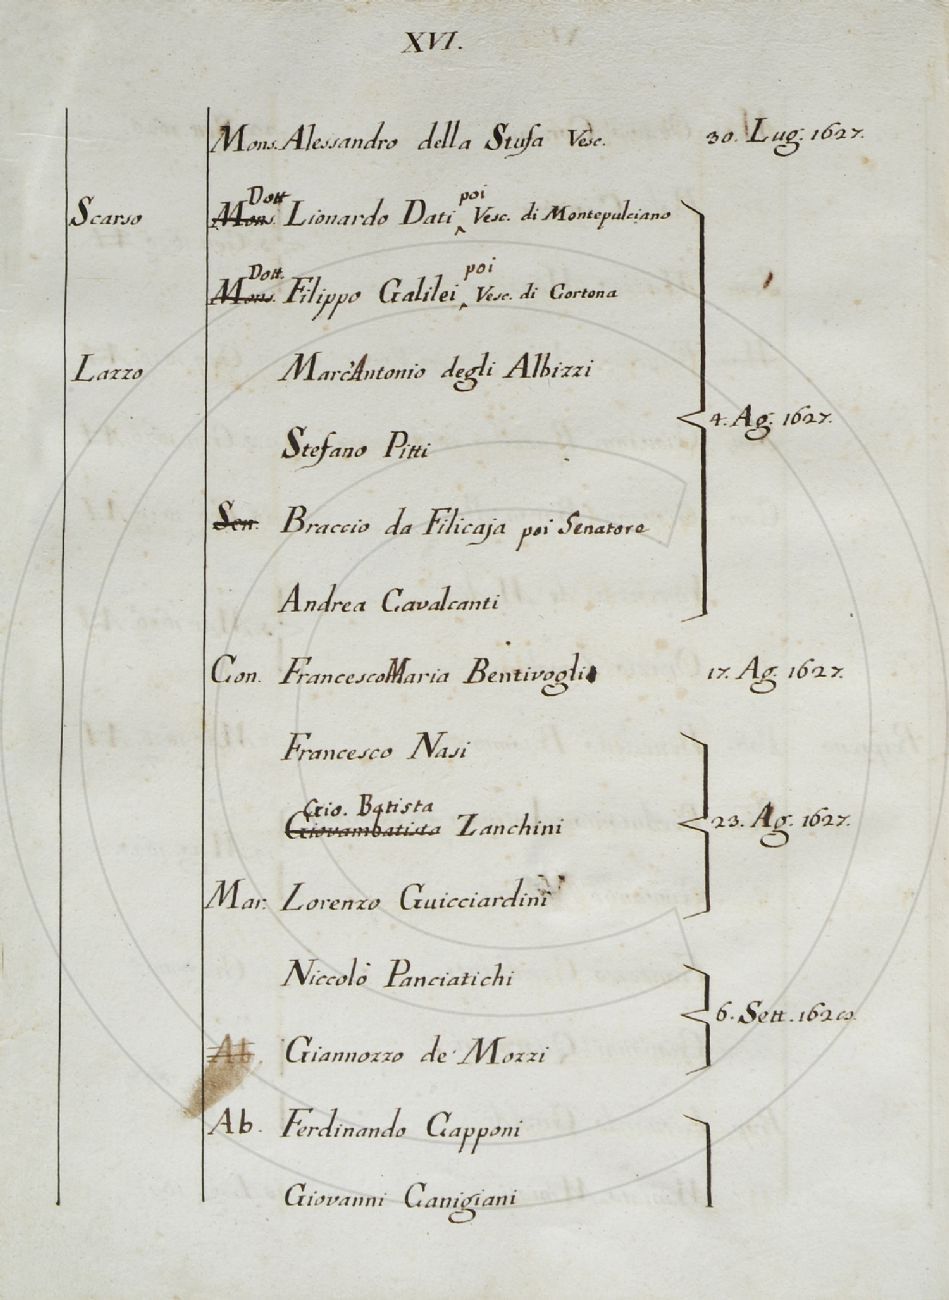 XVI.
Mons. Alessandro della Stufa Vesc. 30. Lug. 1627.
Dott poi
Scarso Mons. Lionardo Dati ‸ Vesc. di Montepulciano
Dott. poi
Mons. Filippo Galilei ‸ Vesc. di Cortona
Lazzo Marc'Antonio degli Albizzi
4. Ag. 1627.
Stefano Pitti
Sen. Braccio da Filicaja poi Senatore
Andrea Cavalcanti
Con. Francesco Maria Bentivogli 17. Ag. 1627.
Francesco Nasi
Gio. Batista
Giovambatista Zanchini 23. Ag. 1627.
Mar. Lorenzo Guicciardini
Niccolò Panciatichi
6. Sett.
Ab. Giannozzo de' Mozzi
Ab. Ferdinando Capponi
Giovanni Canigiani